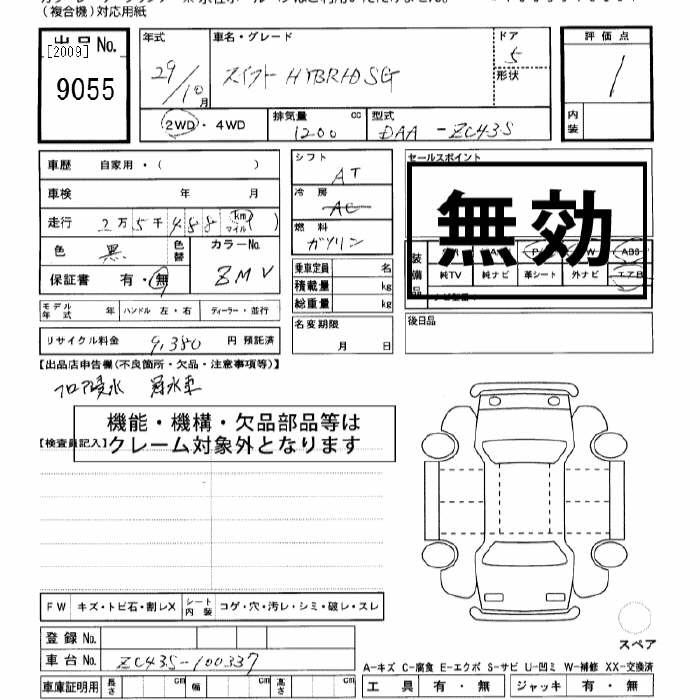 (複合機)対応用紙
出品No.
[2009]
9055
年式
29/10月
車名・グレード
スイフト HYBRID SG
ドア
5
形状
評価点
1
内装
2WD・4WD
排気量
1200 cc
型式
DAA-ZC43S
車歴 自家用・( )
車検 年 月
走行 2万5千488 km マイル ( )
色 黒
色替
カラーNo.
ZMV
保証書 有・無
シフト
AT
冷房
AC
燃料
ガソリン
乗車定員 名
積載量 kg
総重量 kg
名変期限
月 日
セールスポイント
無効
装備品
AB
純TV 純ナビ 革シート 外ナビ エアB
後日品
モデル年式 年 ハンドル 左・右 ディーラー・並行
リサイクル料金 9,380 円 預託済
【出品店申告欄(不良箇所・欠品・注意事項等)】
フロア浸水 冠水車
機能・機構・欠品部品等は
クレーム対象外となります
【検査員記入】
FW キズ・トビ石・割レX シート内装 コゲ・穴・汚レ・シミ・破レ・スレ
登録No.
車台No. ZC43S-100337
車庫証明用 長さ cm 幅 cm 高さ cm
スペア
A-キズ C-腐食 E-エクボ S-サビ U-凹ミ W-補修 XX-交換済
工具 有・無 ジャッキ 有・無